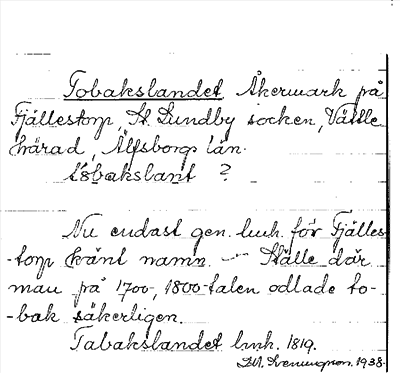 Tobakslandet Åkermark på
Fjällestorp, St. Lundby socken, Vättle
härad, Älfsborgs län.
to͝bakslant ?
Nu endast gen. lmh. för Fjälles-
-torp känt namn. — Ställe där
man på 1700-, 1800-talen odlade to-
-bak säkerligen.
Tabakslandet lmh. 1819.
Sveningson. 1938.